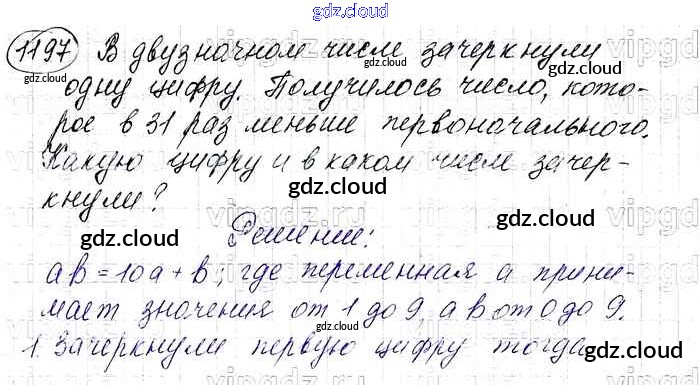 gdz.cloud
1197 В двузначном числе зачеркнули
одну цифру. Получилось число, кото-
рое в 31 раз меньше первоначального.
Какую цифру и в каком числе зачер-
кнули?
Решение:
ab=10a+b; где переменная a прини-
мает значения от 1 до 9, а b от 0 до 9.
1. Зачеркнули первую цифру тогда